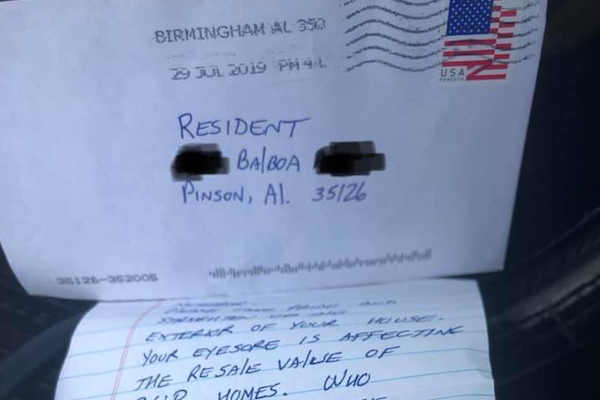 BIRMINGHAM AL 350
29 JUL 2019 PM 4 L
USA
FOREVER
RESIDENT
BAlBOA
PINSON, Al. 35126
35126-352006
PLEASE TAKE PRIDE AND
EXTERIOR OF YOUR HOUSE.
YOUR EYESORE IS AFFECTING
THE RESALE VALUE OF
OUR HOMES. WHO